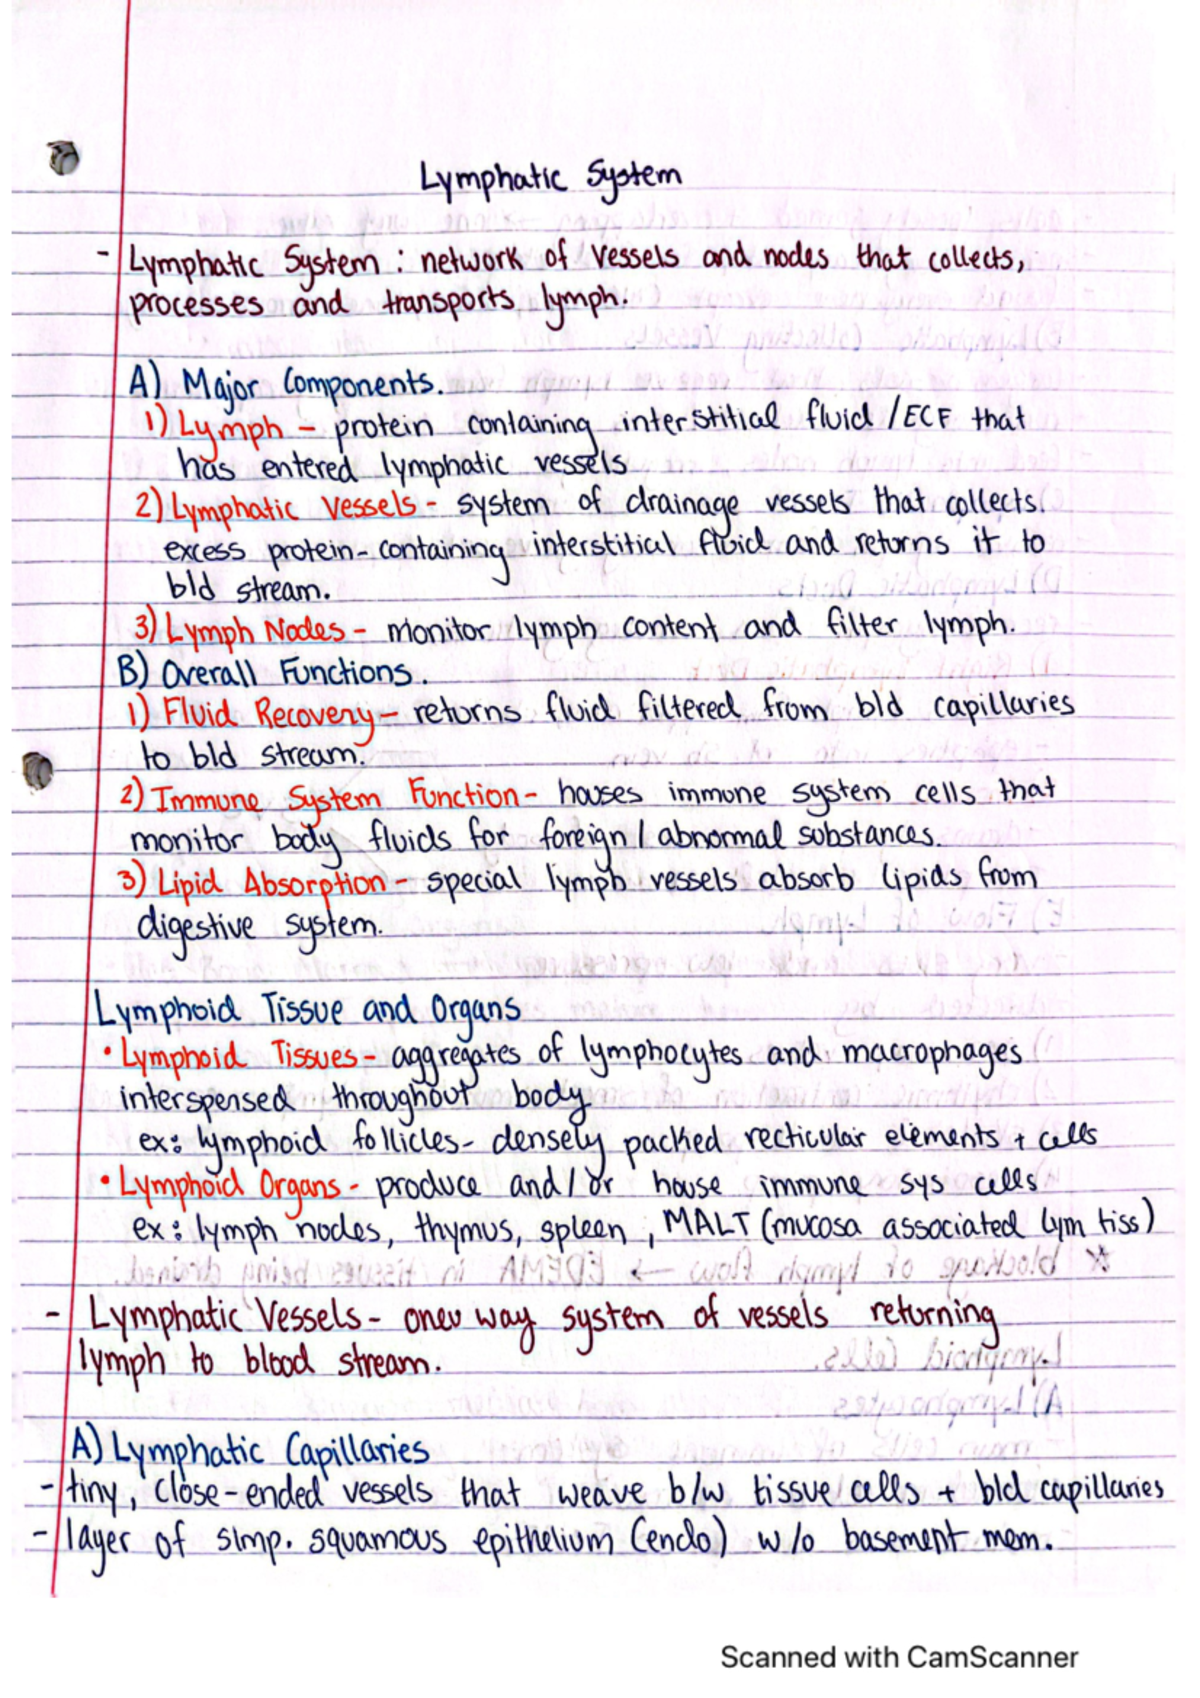 Lymphatic System
- Lymphatic System : network of vessels and nodes that collects,
processes and transports lymph.
A) Major Components.
1) Lymph - protein containing interstitial fluid / ECF that
has entered lymphatic vessels
2) Lymphatic Vessels - system of drainage vessels that collects.
excess protein-containing interstitial fluid and returns it to
bld stream.
3) Lymph Nodes - monitor lymph content and filter lymph.
B) Overall Functions.
1) Fluid Recovery - returns fluid filtered from bld capillaries
to bld stream.
2) Immune System Function - houses immune system cells that
monitor body fluids for foreign / abnormal substances.
3) Lipid Absorption - special lymph vessels absorb lipids from
digestive system.
Lymphoid Tissue and Organs
• Lymphoid Tissues - aggregates of lymphocytes and macrophages
interspensed throughout body
ex: lymphoid follicles - densely packed recticular elements + cells
• Lymphoid Organs - produce and/or house immune sys cells
ex: lymph nodes, thymus, spleen, MALT (mucosa associated lym tiss)
- Lymphatic Vessels - one way system of vessels returning
lymph to blood stream.
A) Lymphatic Capillaries
- tiny, close-ended vessels that weave b/w tissue cells + bld capillaries
- layer of simp. squamous epithelium (endo) w/o basement mem.
Scanned with CamScanner